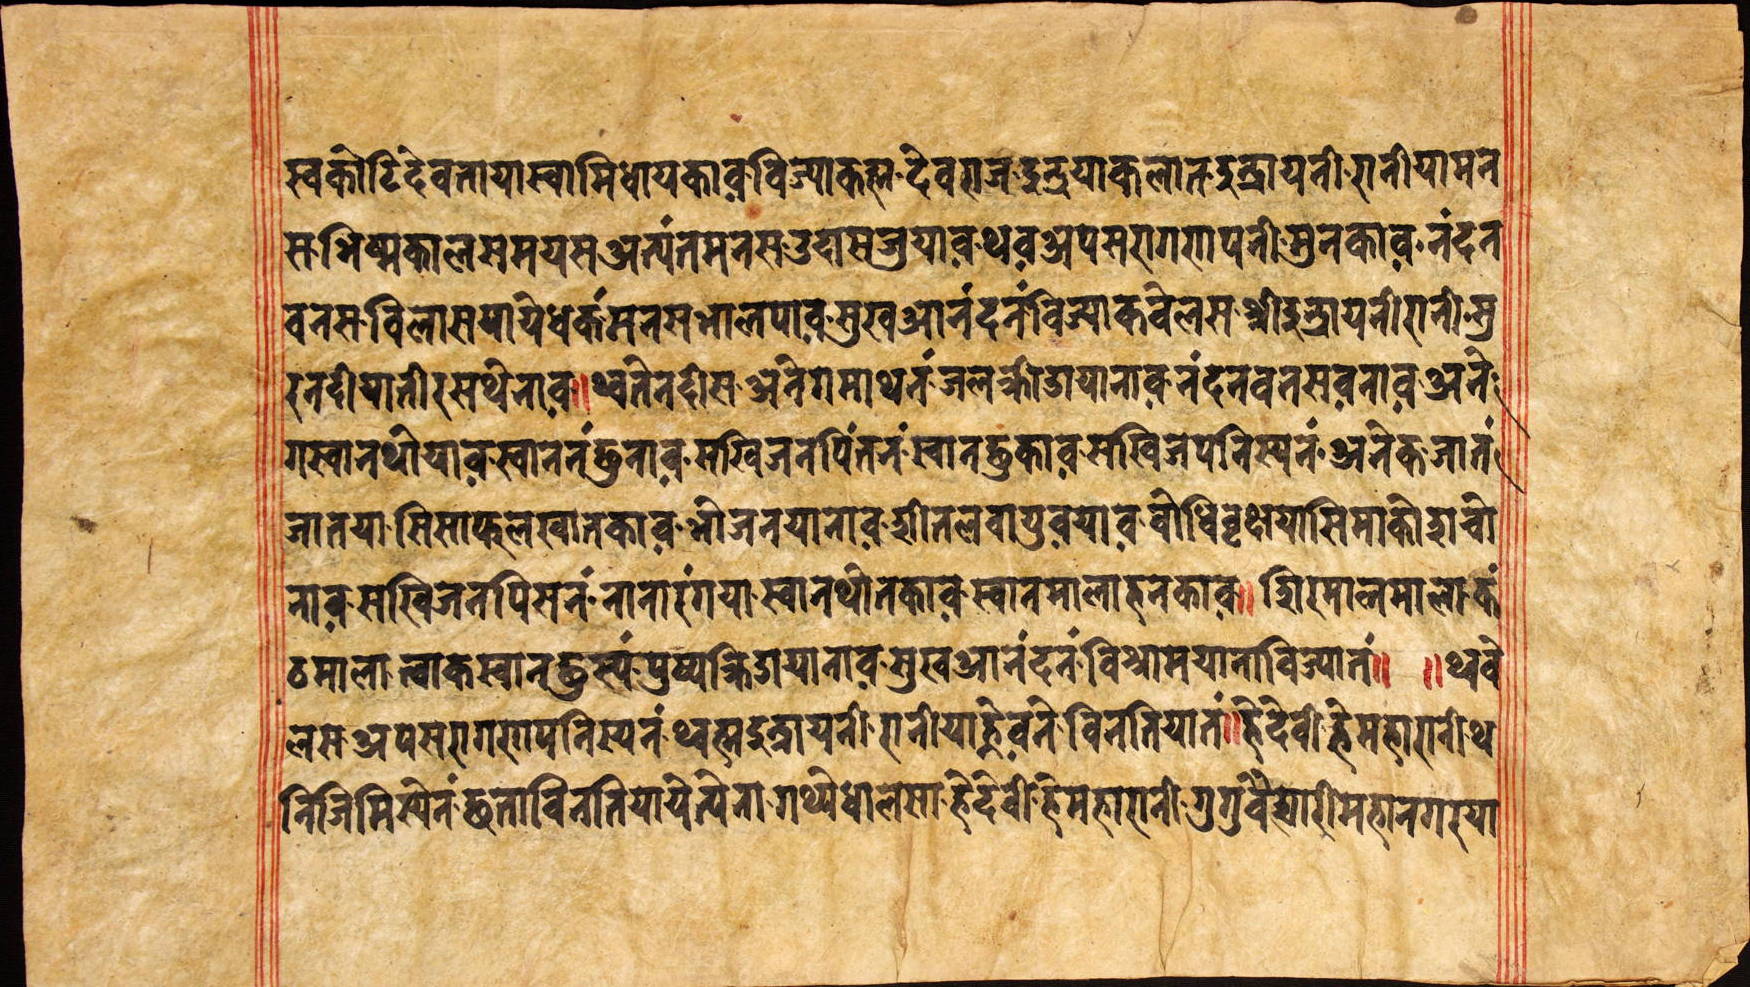 स्वकोटिदेवतायास्वामिधायकाव़विज्याकह्म देवराज इन्द्रयाकलात इन्द्रायनी रानीयामन
स भिष्मकालसमयस अत्यंतमनस उदासजुयाव़ थव़अपसरागरापनी मुनकाव़ नंदन
वनस विलासयायेधकंमनसभालपाव़ सुखआनंदनंविज्याकवेलस श्रीइन्द्रायनीरानी सु
रनदीयातीरसथेनाव़॥ थ्वतेनदीस अनेगमाथनं जलक्रीडायानाव़ नंदनवनसव़नाव़ अने
गस्वानथोयाव़ स्वानेनंछुनाव़ सखिजनपिंतनं स्वानछुकाव़ सखिजेपनिस्यनं अनेकजातं
जातया सिसाफुलखातकाव़ भोजनयानाव़ शीतलवायुव़याव़ वोधिवृक्षयासिमाकोशचो
नाव़ सखिजनपिसनं नानारंगया स्वानथोतकाव़ स्वानमालाहनकाव़॥ शिरमालमालाकं
ठमाला त्वाकस्वानछुस्यं पुष्पक्रिडायानाव़ सुखआनंदनं विश्रामयानाविज्यातं॥ ॥थ्ववे
लस अपसरागरापनिस्यनं थ्वह्मइन्द्रायनी रानीयाह्नेव़ने विनतियातं॥ हेदेवी हेमहारानी थ
निजिमिस्येनं छताविनतियायेत्येना गथ्येधालसा हेदेवी हेमहारानी गुगुवैद्यारीमहानगरया